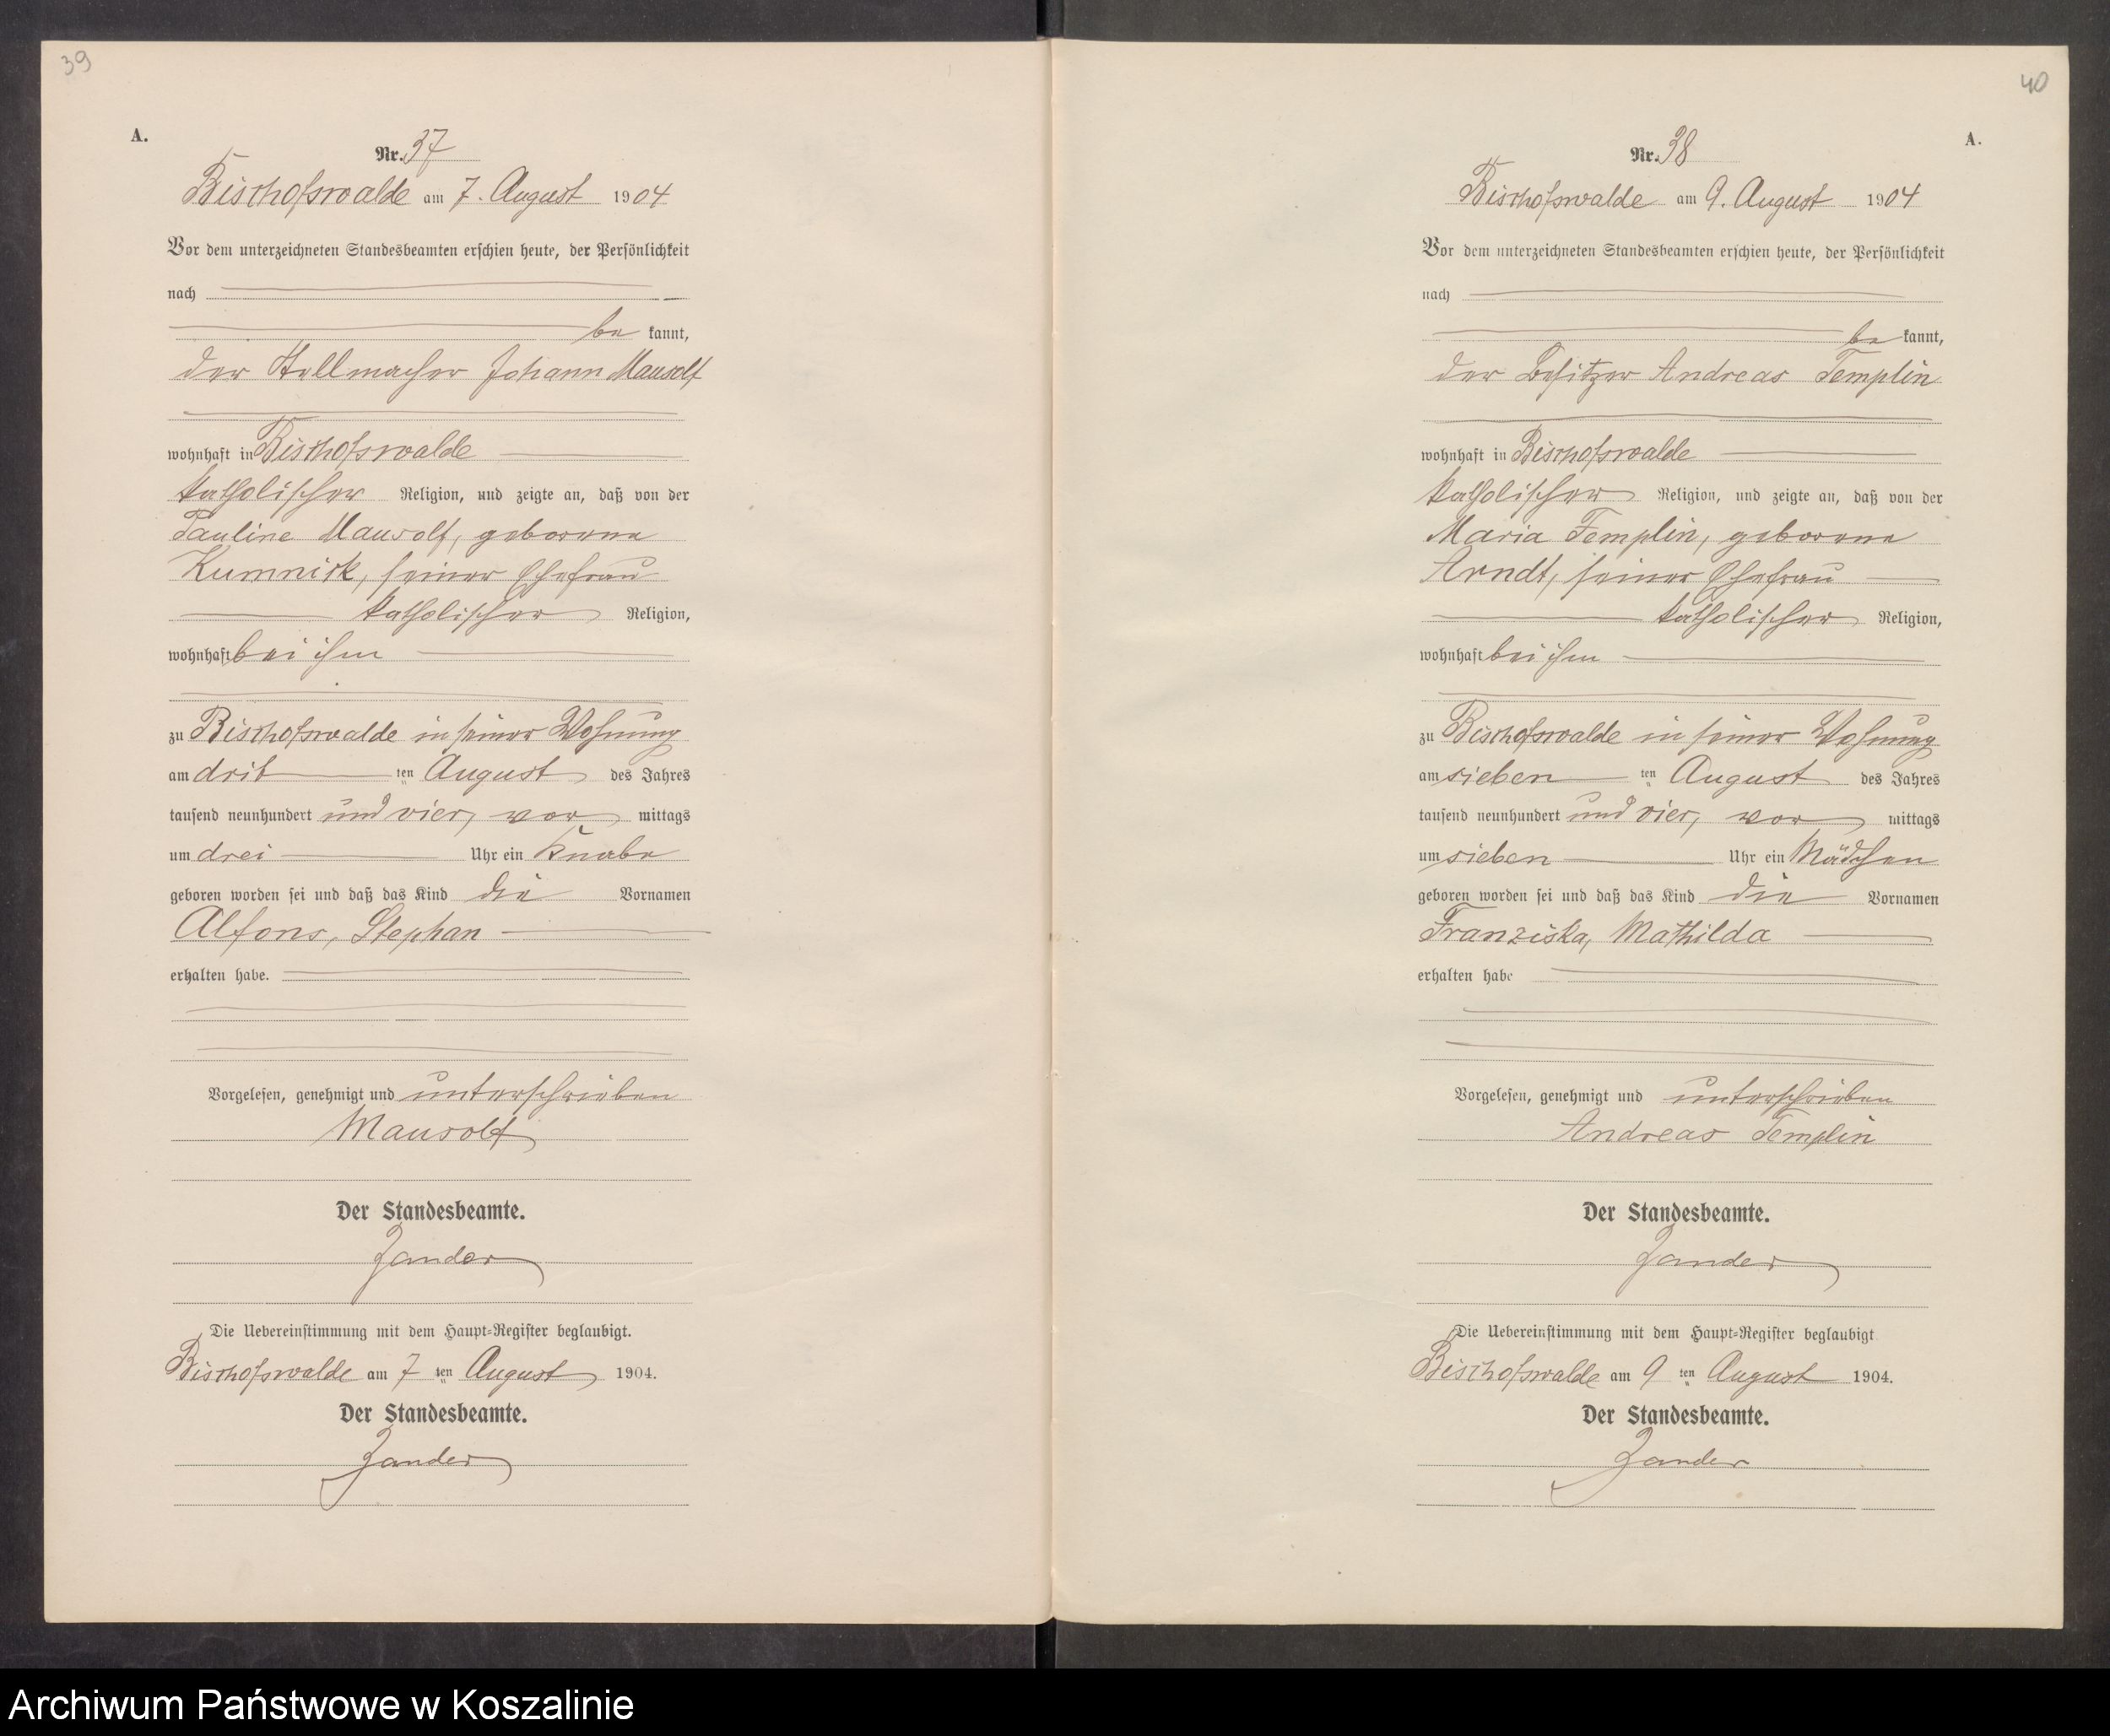 39
A.
Nr. 37
Bischofswalde am 7. August 1904
Vor dem unterzeichneten Standesbeamten erschien heute, der Persönlichkeit
nach
be kannt,
der Stellmacher Johann Mausolf
wohnhaft in Bischofswalde
katholischer Religion, und zeigte an, daß von der
Pauline Mausolf, geborene
Kumnick, seiner Ehefrau
katholischer Religion,
wohnhaft bei ihm
zu Bischofswalde in seiner Wohnung
am drit ten August des Jahres
tausend neunhundert und vier, vor mittags
um drei Uhr ein Knabe
geboren worden sei und daß das Kind die Vornamen
Alfons, Stephan
erhalten habe.
Vorgelesen, genehmigt und unterschrieben
Mausolf
Der Standesbeamte.
Zander
Die Uebereinstimmung mit dem Haupt-Register beglaubigt.
Bischofswalde am 7 ten August 1904.
Der Standesbeamte.
Zander
40
A.
Nr. 38
Bischofswalde am 9. August 1904
Vor dem unterzeichneten Standesbeamten erschien heute, der Persönlichkeit
nach
be kannt,
der Besitzer Andreas Templin
wohnhaft in Bischofswalde
katholischer Religion, und zeigte an, daß von der
Maria Templin, geborene
Arndt, seiner Ehefrau
katholischer Religion,
wohnhaft bei ihm
zu Bischofswalde in seiner Wohnung
am sieben ten August des Jahres
tausend neunhundert und vier, vor mittags
um sieben Uhr ein Mädchen
geboren worden sei und daß das Kind die Vornamen
Franziska, Mathilda
erhalten habe
Vorgelesen, genehmigt und unterschrieben
Andreas Templin
Der Standesbeamte.
Zander
Die Uebereinstimmung mit dem Haupt-Register beglaubigt
Bischofswalde am 9 ten August 1904.
Der Standesbeamte.
Zander
Archiwum Państwowe w Koszalinie